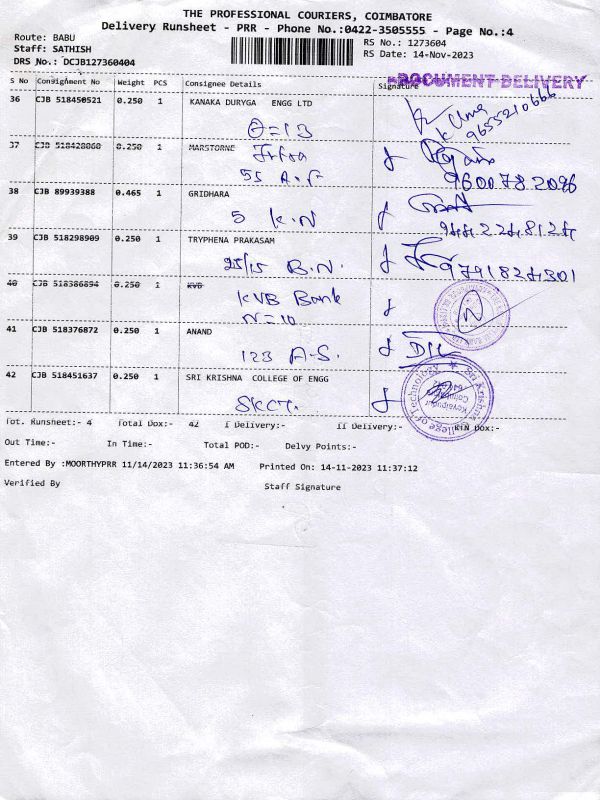 THE PROFESSIONAL COURIERS, COIMBATORE
Delivery Runsheet - PRR - Phone No.:0422-3505555 - Page No.:4
Route: BABU
RS No.: 1273604
Staff: SATHISH
RS Date: 14-Nov-2023
DRS No.: DCJB127360404
DOCUMENT DELIVERY
S No Consignment No Weight PCS Consignee Details Signature
36 CJB 518450521 0.250 1 KANAKA DURYGA ENGG LTD
K Uma
9655210666
θ=13
37 CJB 518428060 0.250 1 MARSTORNE
55 A.F
9600782096
38 CJB 89939388 0.465 1 GRIDHARA
5 K.N
39 CJB 518298909 0.250 1 TRYPHENA PRAKASAM
25/15 B.N.
40 CJB 518386894 0.250 1 KVB
KVB Bank
N=10
41 CJB 518376872 0.250 1 ANAND
123 A.S.
42 CJB 518451637 0.250 1 SRI KRISHNA COLLEGE OF ENGG
SKCT.
Sri Krishna College of Technology
Tot. Runsheet:- 4 Total Dox:- 42 I Delivery:- II Delivery:- KIN Dox:-
Out Time:- In Time:- Total POD:- Delvy Points:-
Entered By :MOORTHYPRR 11/14/2023 11:36:54 AM Printed On: 14-11-2023 11:37:12
Verified By Staff Signature